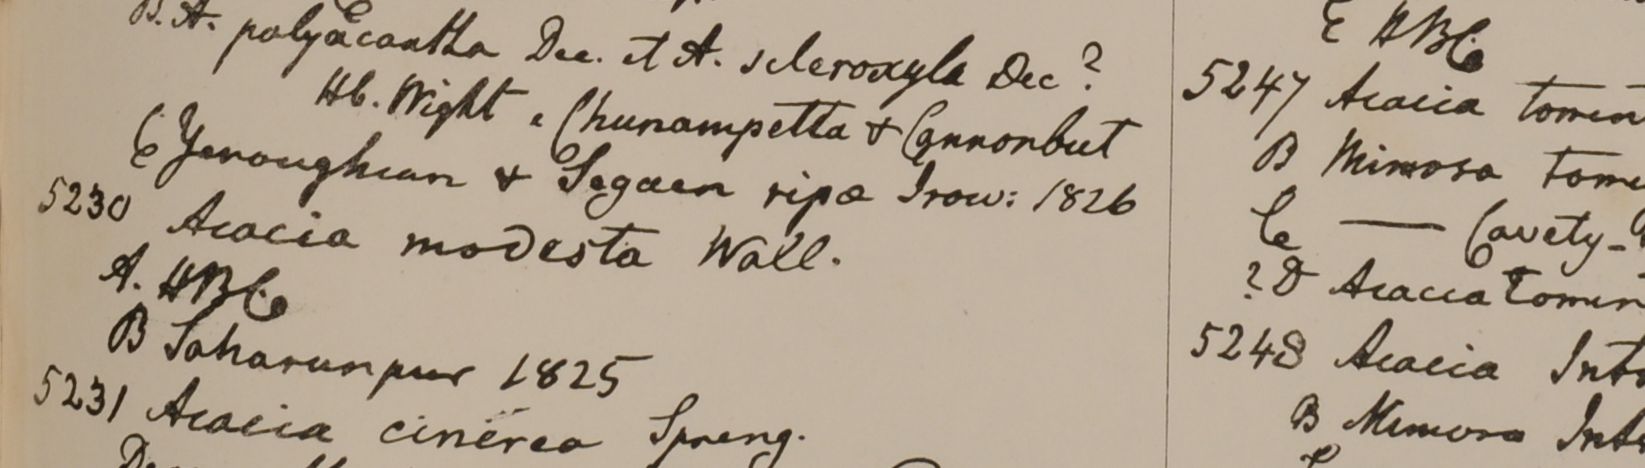 B. A. polyacantha Dec. et A. scleroxyla Dec?
Hb. Wight. Chunampetta & Cannonbut
C Yenoughean & Segaen ripa Irow: 1826
5230 Acacia modesta Wall.
A. HBC
B Saharunpur 1825
5231 Acacia cinerea Spreng.
E HBC
5247 Acacia tomen
B Mimosa tome
C — Cavety-
?D Acacia tomen
5248 Acacia Int
B Mimosa Int